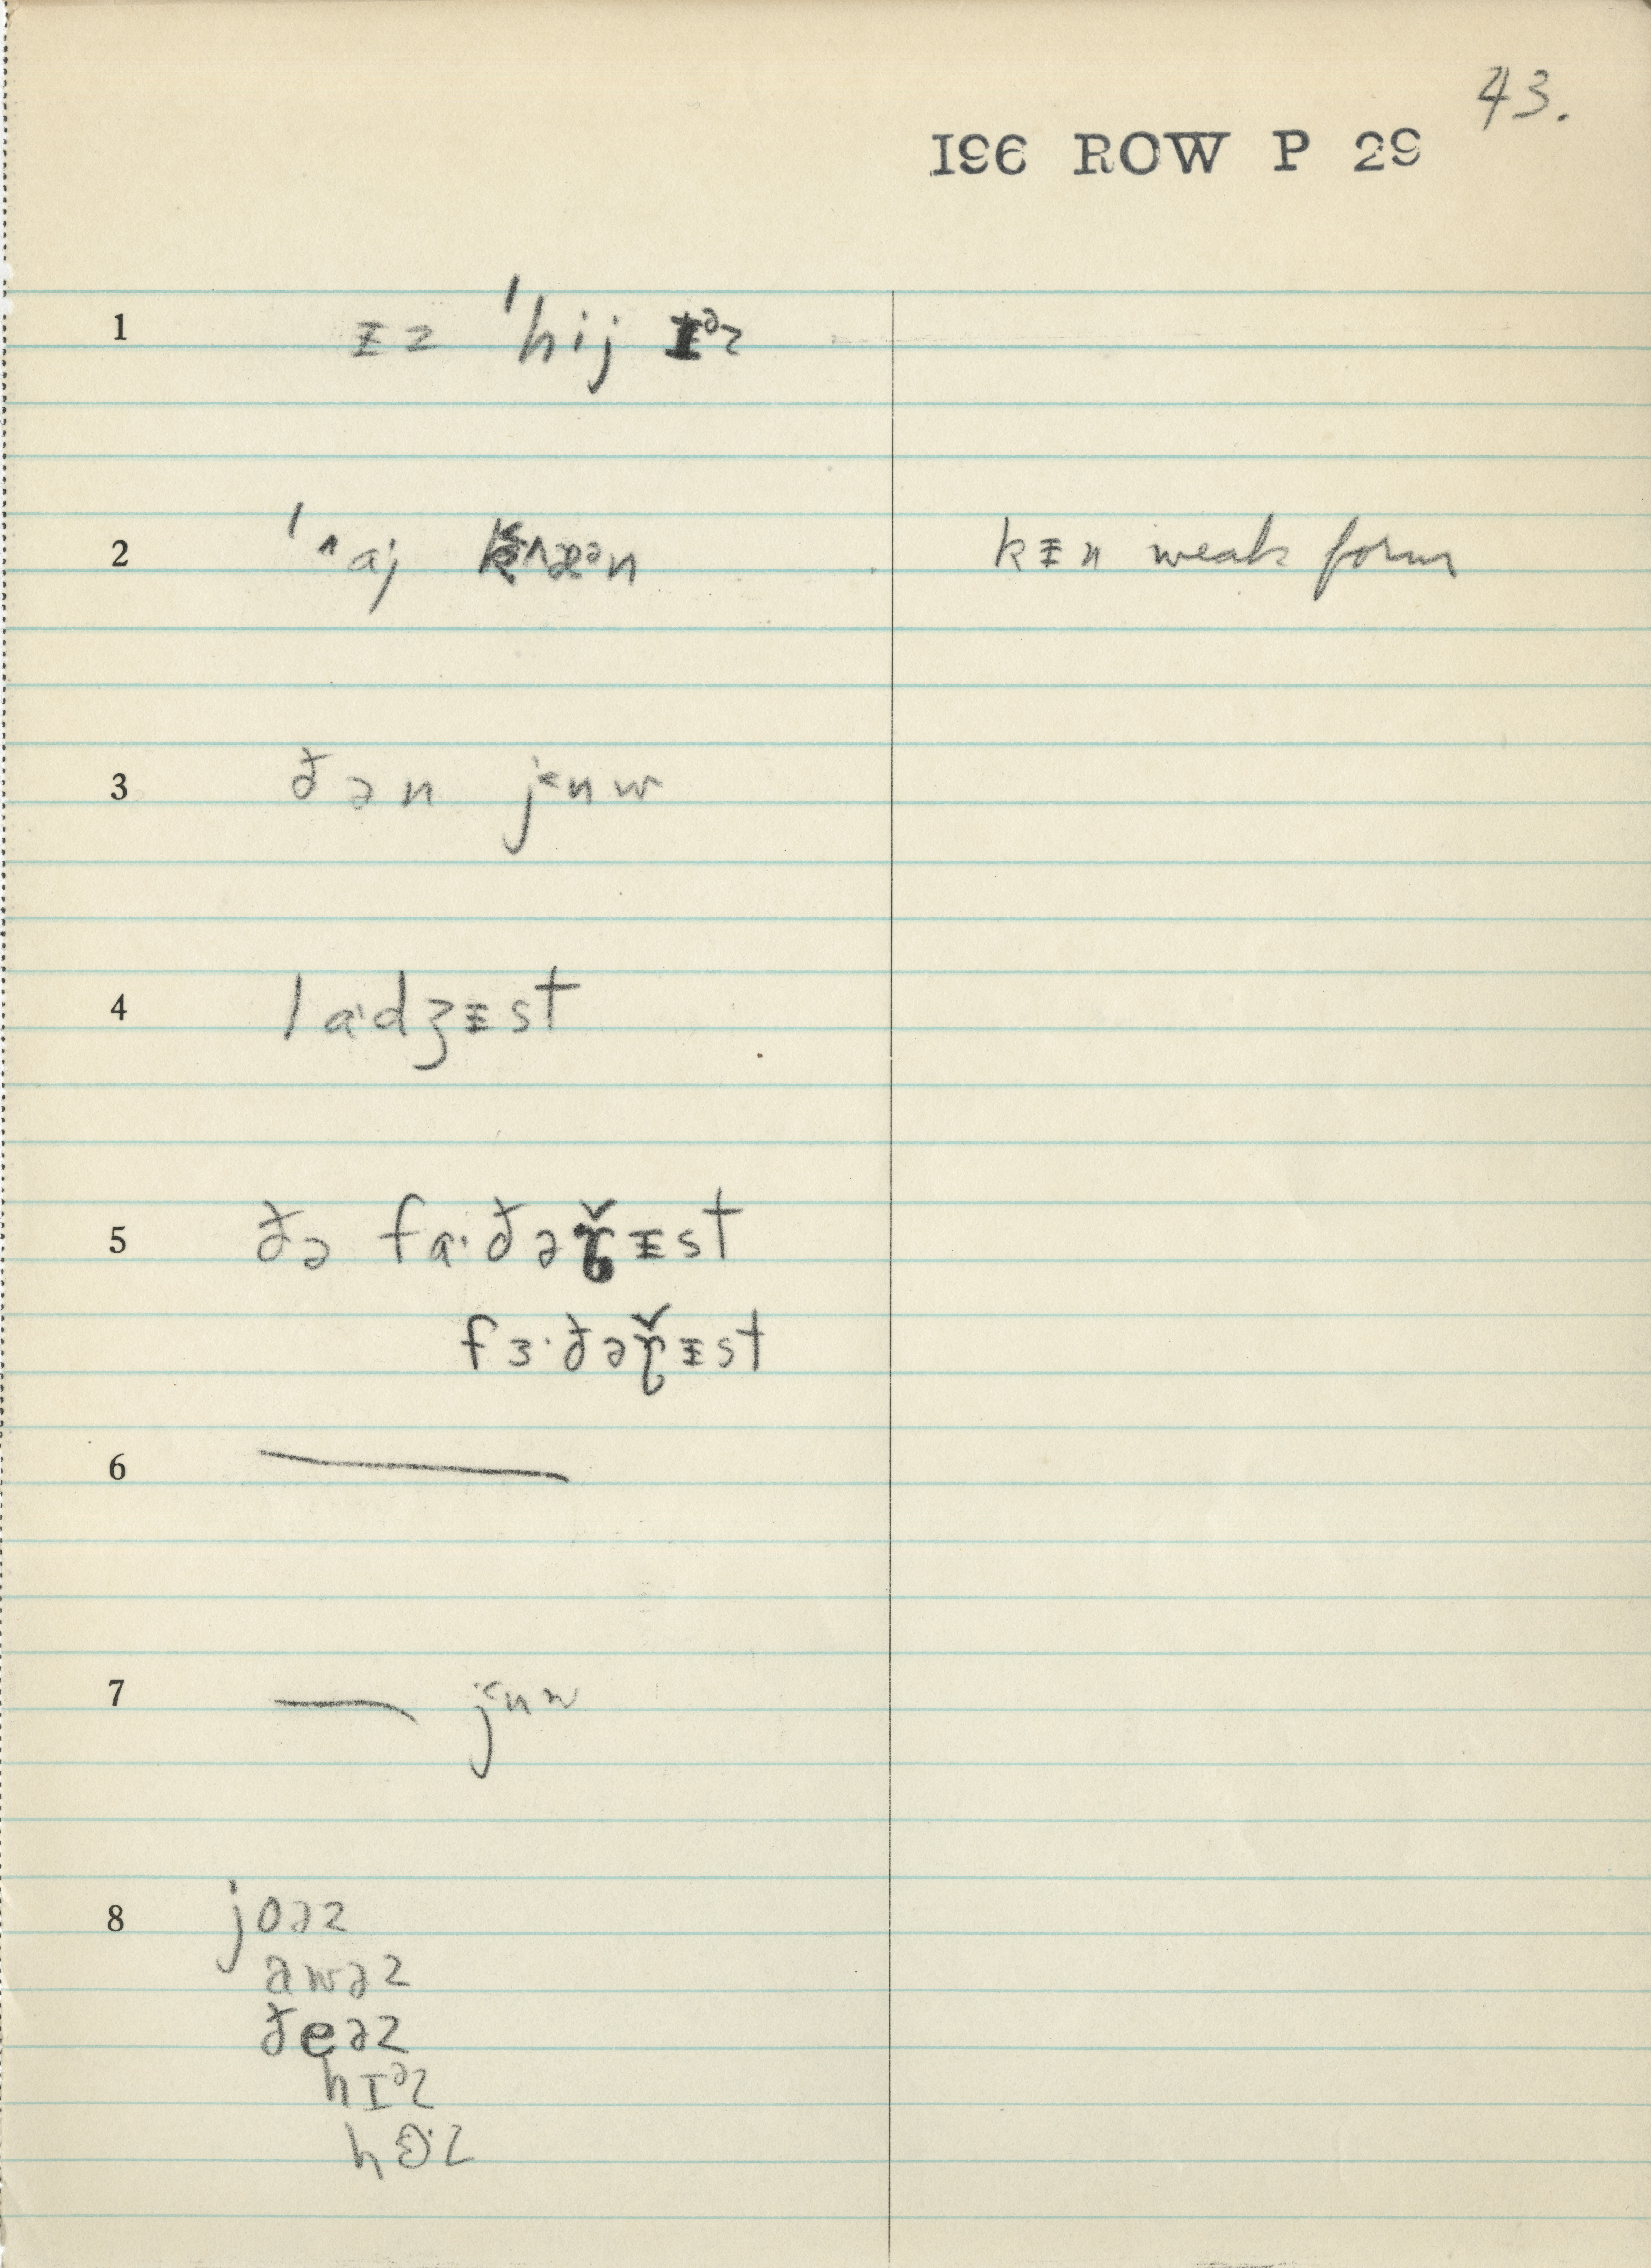 43.
196 ROW P 29
1 ᵻz ˈhij ɪᵊz
2 ˈ˄aj k˄æᵊn kᵻn weak form
3 ðən j˂ʉw
4 la·dʒᵻst
5 ðə fɑ·ðəɽ̌ᵻst
fɜ·ðəɽ̌ᵻst
6 —
7 — j˂ʉw
8 joəz
awəz
ðeəz
hɪᵊz